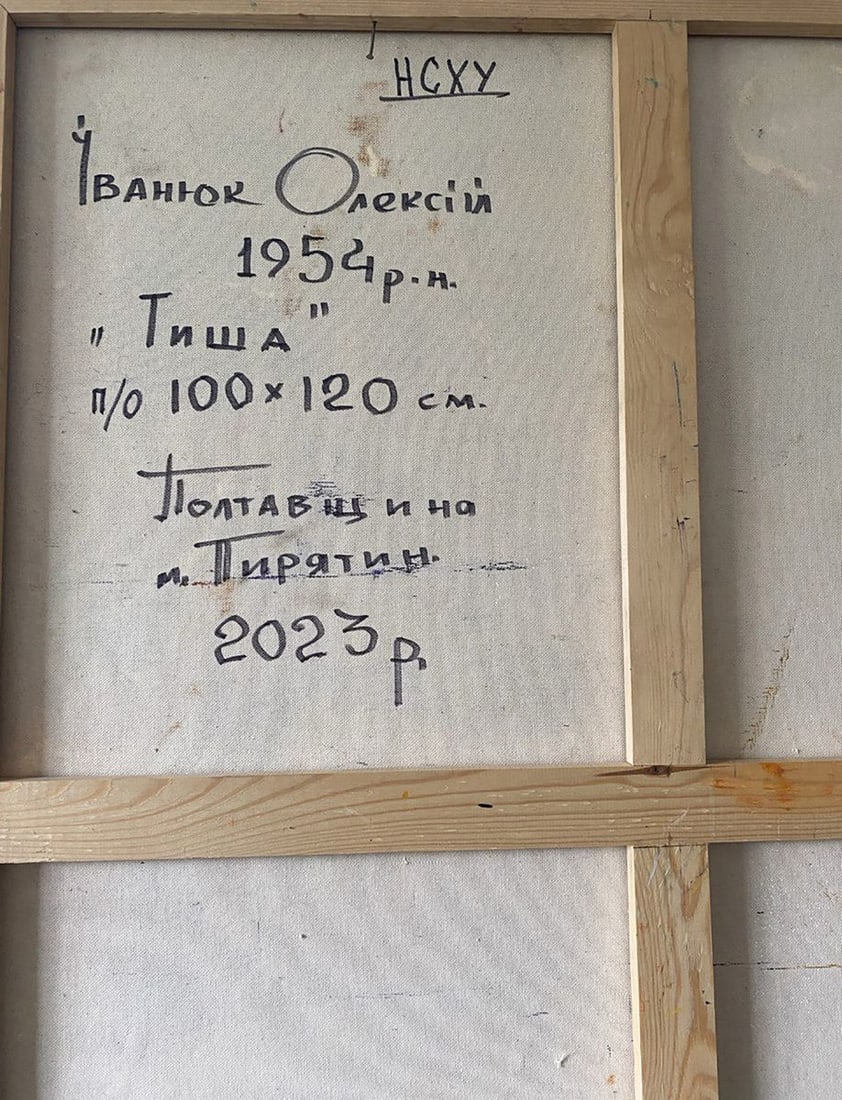 НСХУ
Іванюк Олексій
1954 р.н.
„Тиша"
п/о 100×120 см.
Полтавщина
м. Пирятин.
2023 р.